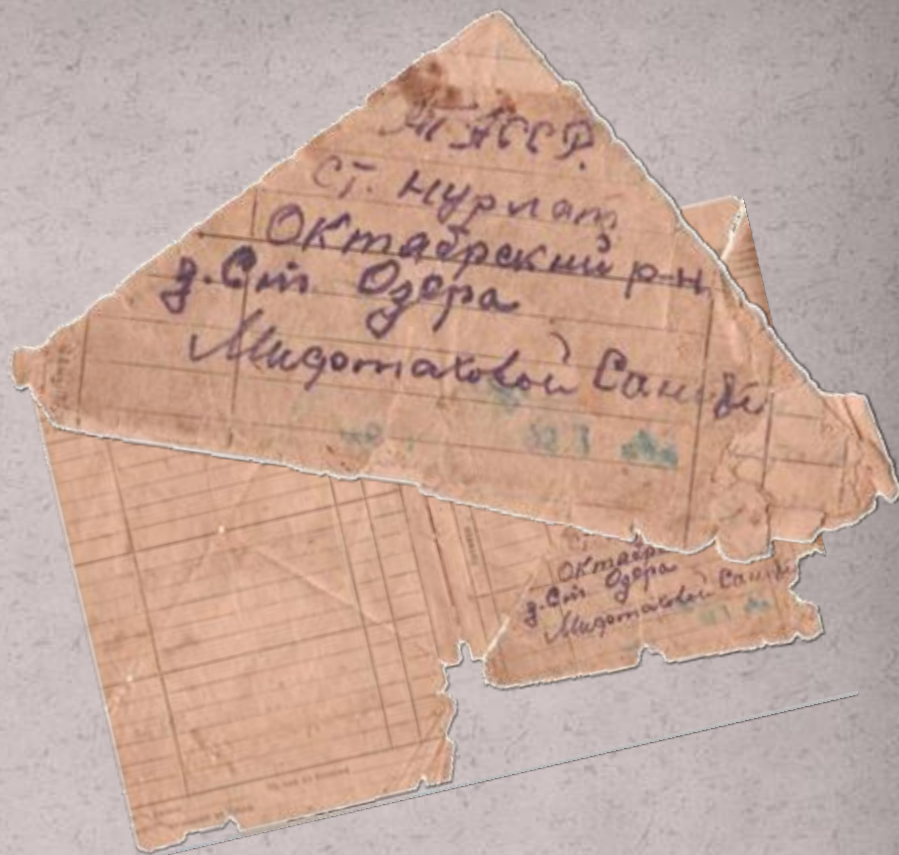 ТАССР.
ст. Нурлат
Октабрский р-н
д. Ст. Озера
Мидотаховой
Октабр
д. Ст. Озера
Мидотаховой